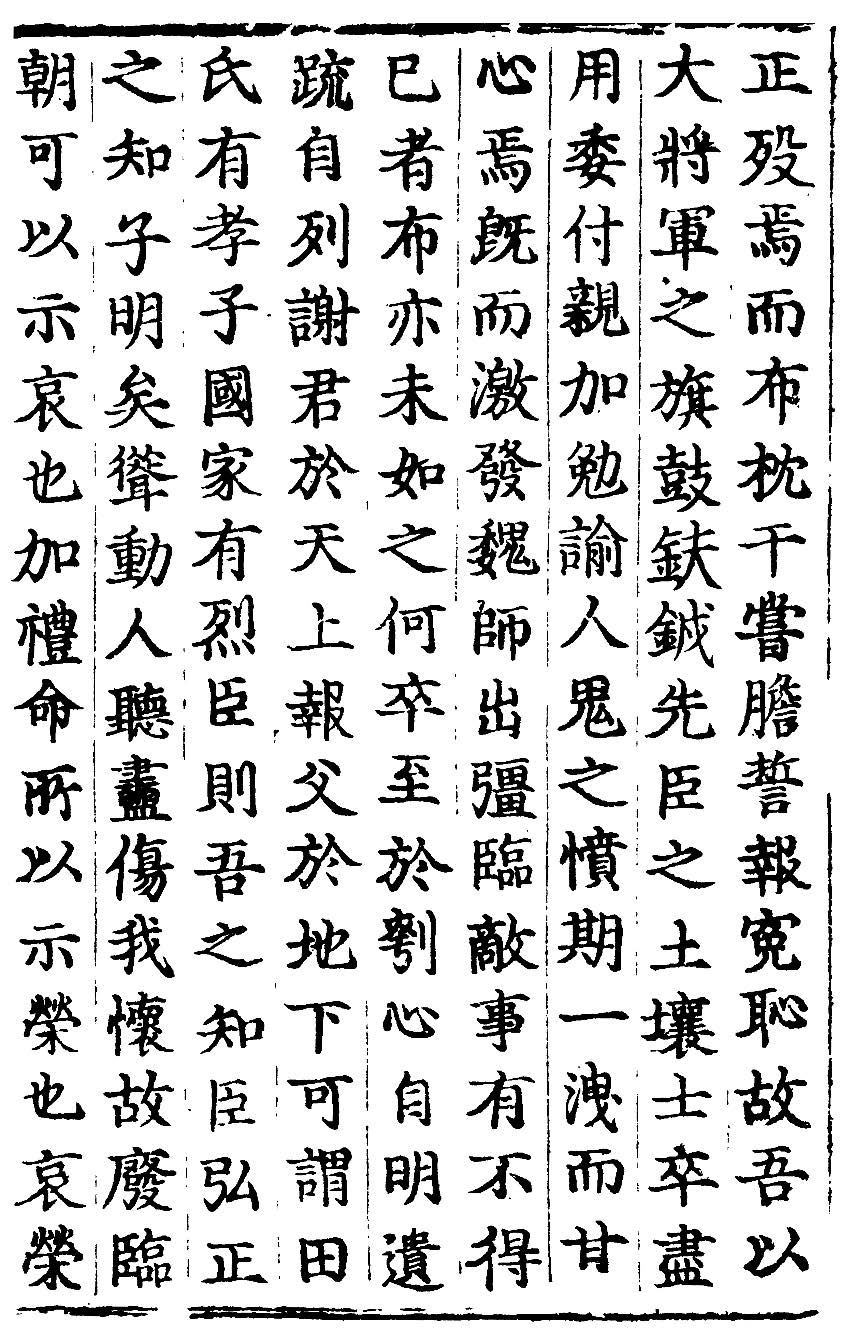 正歿焉而布枕干嘗膽誓報寃恥故吾以
大將軍之旗鼓鈇鉞先臣之土壤士卒盡
用委付親加勉諭人鬼之憤期一洩而甘
心焉旣而激發魏師出彊臨敵事有不得
已者布亦未如之何卒至於刳心自明遺
䟽自列謝君於天上報父於地下可謂田
氏有孝子國家有烈臣則吾之知臣弘正
之知子明矣聳動人聽盡傷我懷故廢臨
朝可以示哀也加禮命所以示榮也哀榮